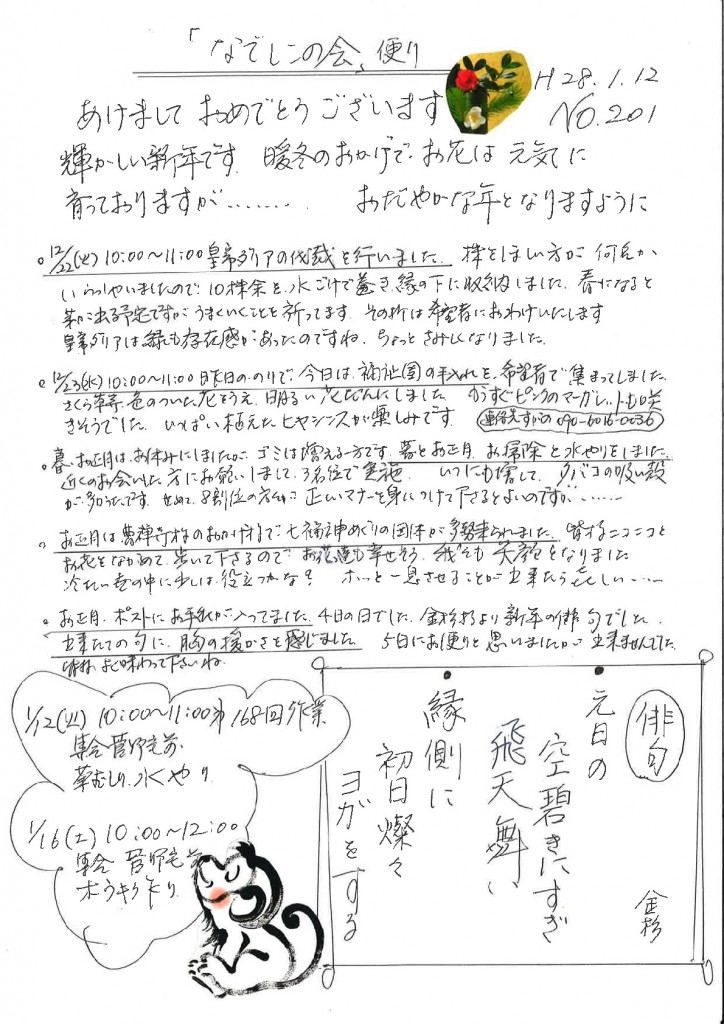 「なでしこの会」便り
H28.1.12
NO.201
あけまして おめでとうございます
輝かしい新年です. 暖冬のおかげで お花は 元気に
育っておりますが……… おだやかな年となりますように
○12/22(火) 10:00〜11:00 皇帝ダリアの伐裁を行いました. 株をほしい方が 何名か
いらっしゃいましたので 10株余を 水ごけで巻き 縁の下に収納しました. 春になると
芽が出る予定ですが うまくいくことを祈ってます. その折は希望者におわけいたします
皇帝ダリアは 存在感があったのですね. ちょっと さみしくなりました.
○12/23(水) 10:00〜11:00 昨日の のりで、今日は、福祉園の手入れを、希望者で 集まってしました.
さくら草等、色のついた花をうえ、明るい 花だんにしました もうすぐピンクのマーガレットも咲
きそうでした. いっぱい 植えた ヒヤシンスが楽しみです. 連絡先すがの 090-6016-0036
○暮、お正月は、お休みにしましたが、ゴミは増える一方です. 暮とお正月、お掃除と水やりをしました.
近くのお会いした 方にお願いしまして、3名位で実施 いつにも増して、タバコの吸い殻
が多かったです. せめて、8割位の方々が 正しいマナーを身につけて下さるとよいのですが……
○お正月は 豊禅寺様のおかげで、七福神めぐりの団体が多勢来られました. 皆様ニコニコと
お花をながめて、歩いて下さるので、お花達も幸せそう. 我々も 笑顔となりました
冷たい冬の中に 少しは 役立つかな? ホッと一息させることが 出来たら 嬉しい……
○お正月、ポストに お手紙が入ってました. 4日の日でした. 金杉様より新年の俳句でした.
出来たての句に、胸の暖かさを感じました. 5日にお便りと思いましたが 出来ませんでした.
皆様、よく味わって下さいね.
1/12(火) 10:00〜11:00 第168回作業
集合 菅野宅前
草むしり、水やり
1/16(土) 10:00〜12:00
集合 菅野宅前
ホウキ作り
俳句
金杉
・元日の
空碧きにすぎ
飛天舞い
・縁側に
初日燦々
ヨガをする